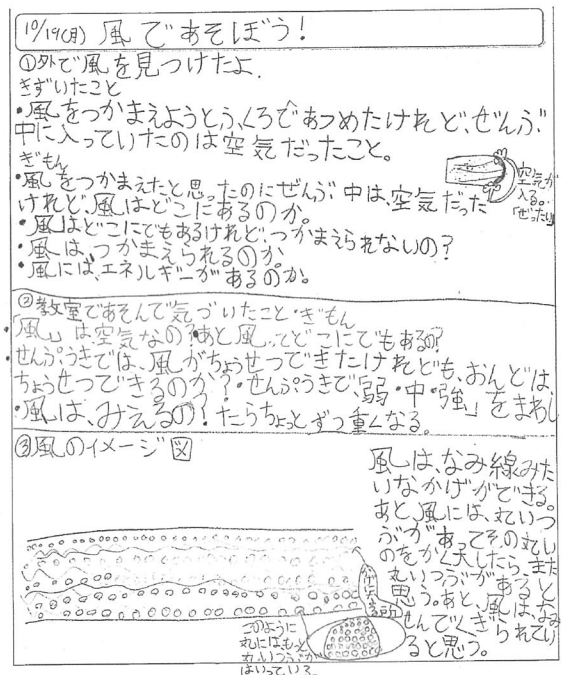 10/19(月) 風であそぼう!
①外で風を見つけたよ.
きずいたこと
・風をつかまえようとふくろであつめたけれど、ぜんぶ
中に入っていたのは空気だったこと。
ぎもん
・風をつかまえたと思ったのにぜんぶ中は、空気だった
けれど、風はどこにあるのか。
空気が
入る。
「ぜったい」
・風はどこにでもあるけれど、つかまえられないの?
・風は、つかまえられるのか。
・風には、エネルギーがあるのか。
②教室であそんで気づいたこと・ぎもん
・「風」は空気なの?・あと風ってどこにでもあるの?
・せんぷうきでは、風がちょうせつできたけれども、おんどは、
ちょうせつできるのか?・せんぷうきで、「弱・中・強」をまわし
・風は、みえるの? たらちょっとずつ重くなる。
③風のイメージ図
風は、なみ線みた
いなかげができる。
あと、風には、丸いつ
ぶがあってその丸い
のをかく大したら、また
丸いつぶがあると
思う。あと、風は、なみ
せんでくぎられてい
ると思う。
このように
丸には、もっと
丸いつぶが
はいっている。